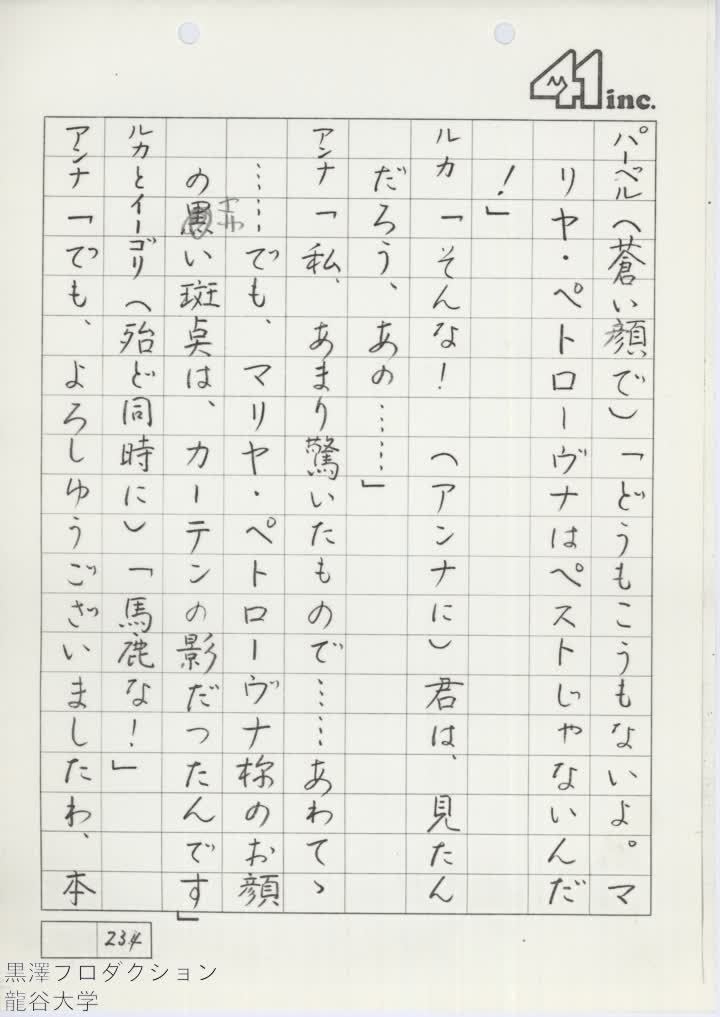 41 inc.
パーベル（蒼い顔で）「どうもこうもないよ。マ
リヤ・ペトローヴナはペストじゃないんだ
！」
ルカ「そんな！（アンナに）君は、見たん
だろう、あの……」
アンナ「私、あまり驚いたもので……あわてゝ
……でも、マリヤ・ペトローヴナ様のお顔
の黒い斑点は、カーテンの影だったんです」
ルカとイーゴリ（殆ど同時に）「馬鹿な！」
アンナ「でも、よろしゆうございましたわ、本
234
黒澤プロダクション
龍谷大学